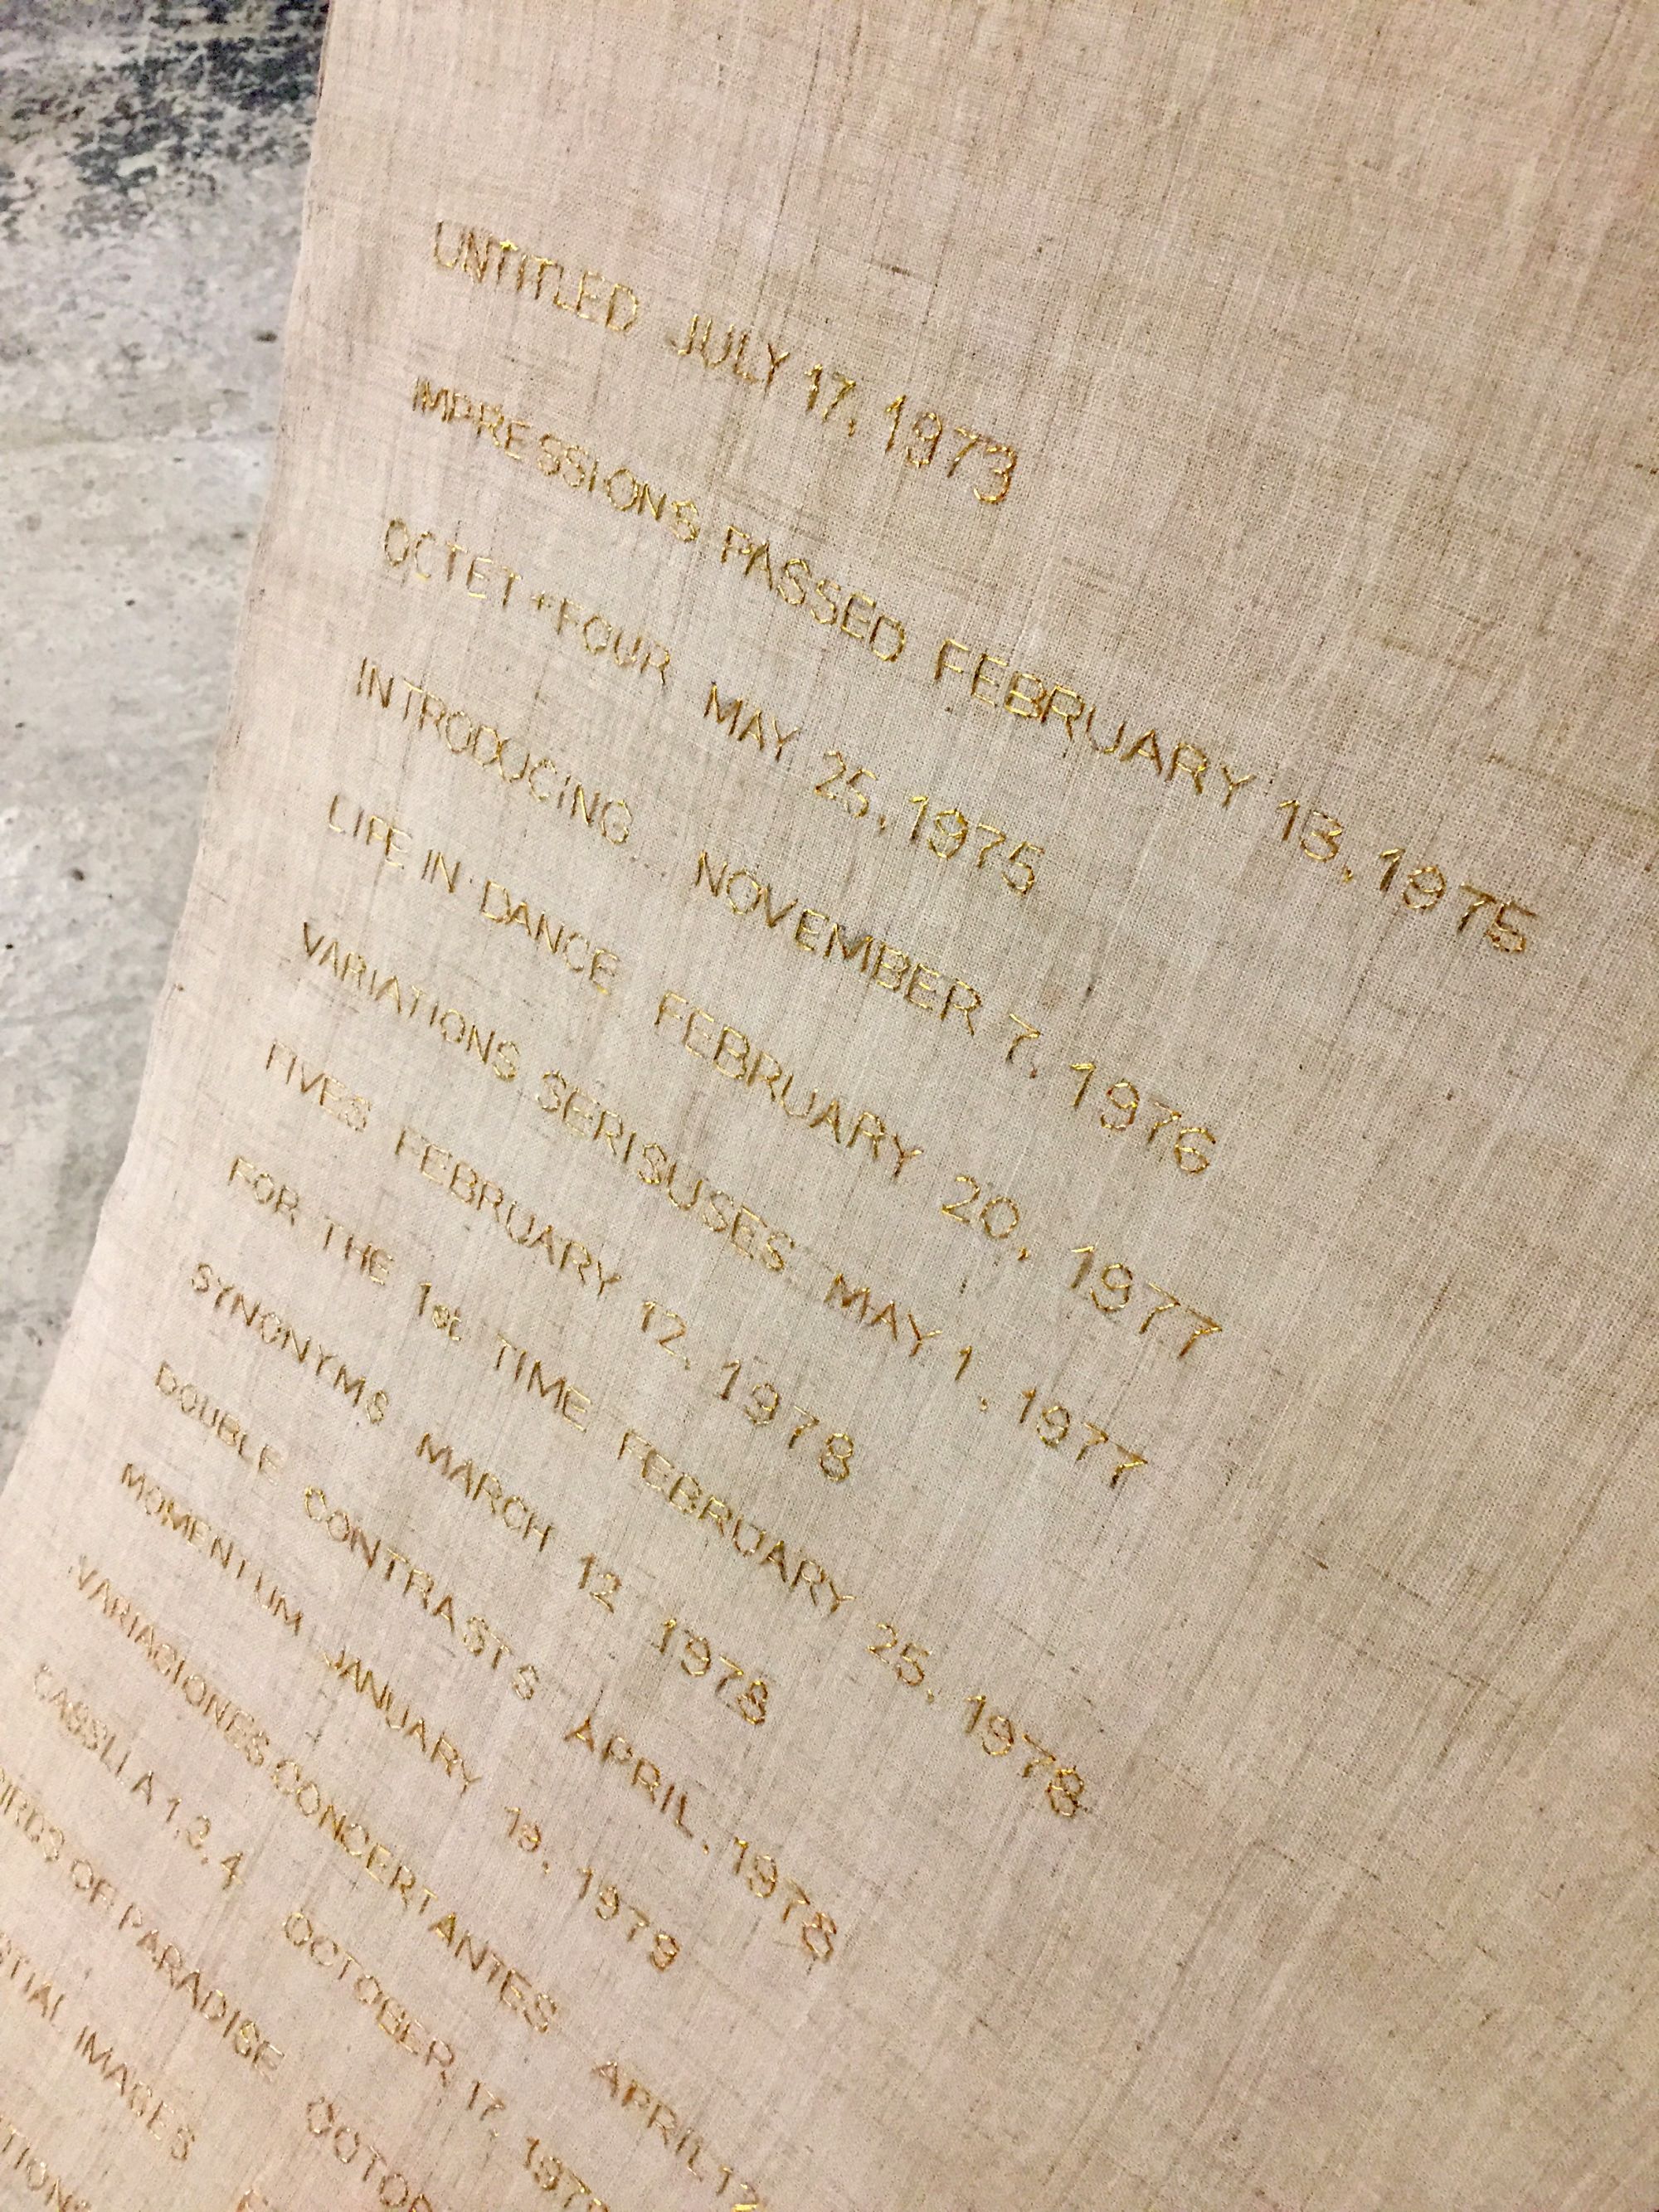 UNTITLED JULY 17, 1973
IMPRESSIONS PASSED FEBRUARY 13, 1975
OCTET + FOUR MAY 25, 1975
INTRODUCING... NOVEMBER 7, 1976
LIFE IN DANCE FEBRUARY 20, 1977
VARIATIONS SERISUSES MAY 1, 1977
FIVES FEBRUARY 12, 1978
FOR THE 1st TIME FEBRUARY 25, 1978
SYNONYMS MARCH 12 1978
DOUBLE CONTRASTS APRIL, 1978
MOMENTUM JANUARY 19, 1979
VARIACIONES CONCERTANTES APRIL 12
1, 3, 4 OCTOBER 17,
OF PARADISE
IMAGES